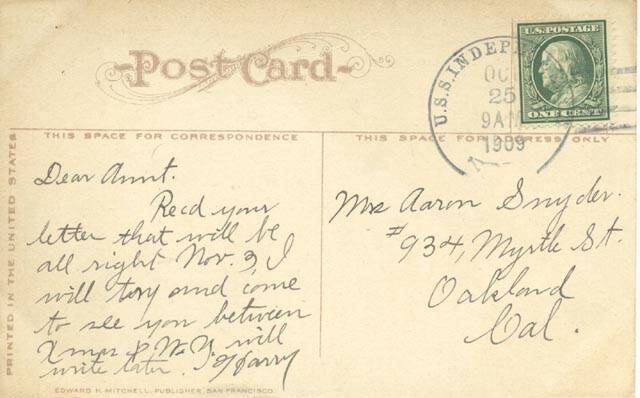 Post Card
U.S. POSTAGE
ONE CENT
U.S.S. INDEP
OC
25
9AM
1909
THIS SPACE FOR CORRESPONDENCE
THIS SPACE FOR ADDRESS ONLY
PRINTED IN THE UNITED STATES
Dear Aunt.
Recd your
letter that will be
all right Nov. 3, I
will tory and come
to see you between
Xmas & N.Y. will
write later. Harry
Mrs Aaron Snyder.
#934, Myrtle St.
Oakland
Cal.
EDWARD H. MITCHELL, PUBLISHER, SAN FRANCISCO.